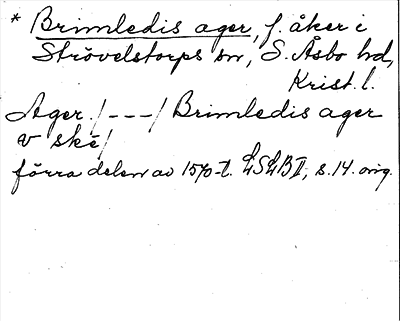 * Brimledis ager, f. åker i
Strövelstorps sn, S. Åsbo hd,
Krist. l.
Ager. /---/ Brimledis ager
v skē/
förra delen av 1570-t. LSLB II, s. 14. orig.